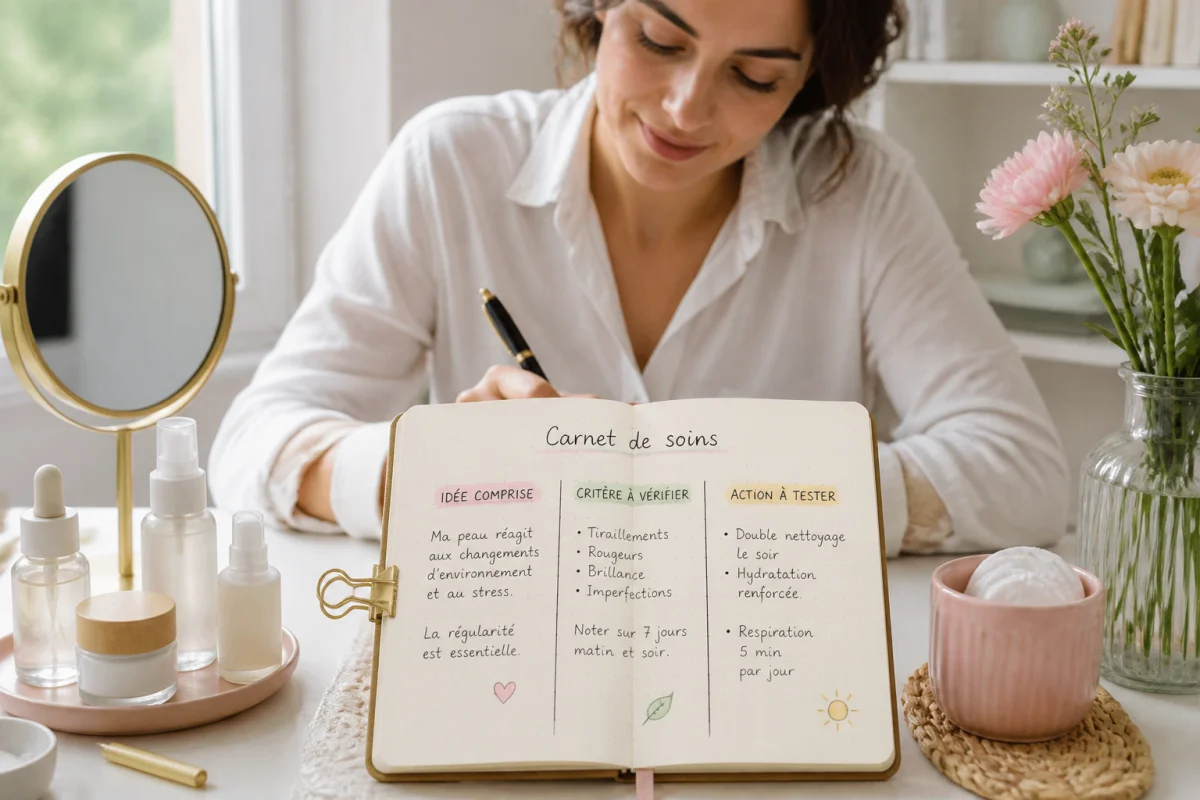 Carnet de soins
IDÉE COMPRISE
Ma peau réagit
aux changements
d'environnement
et au stress.
La régularité
est essentielle.
CRITÈRE À VÉRIFIER
• Tiraillements
• Rougeurs
• Brillance
• Imperfections
Noter sur 7 jours
matin et soir.
ACTION À TESTER
• Double nettoyage
le soir
• Hydratation
renforcée.
• Respiration
5 min
par jour